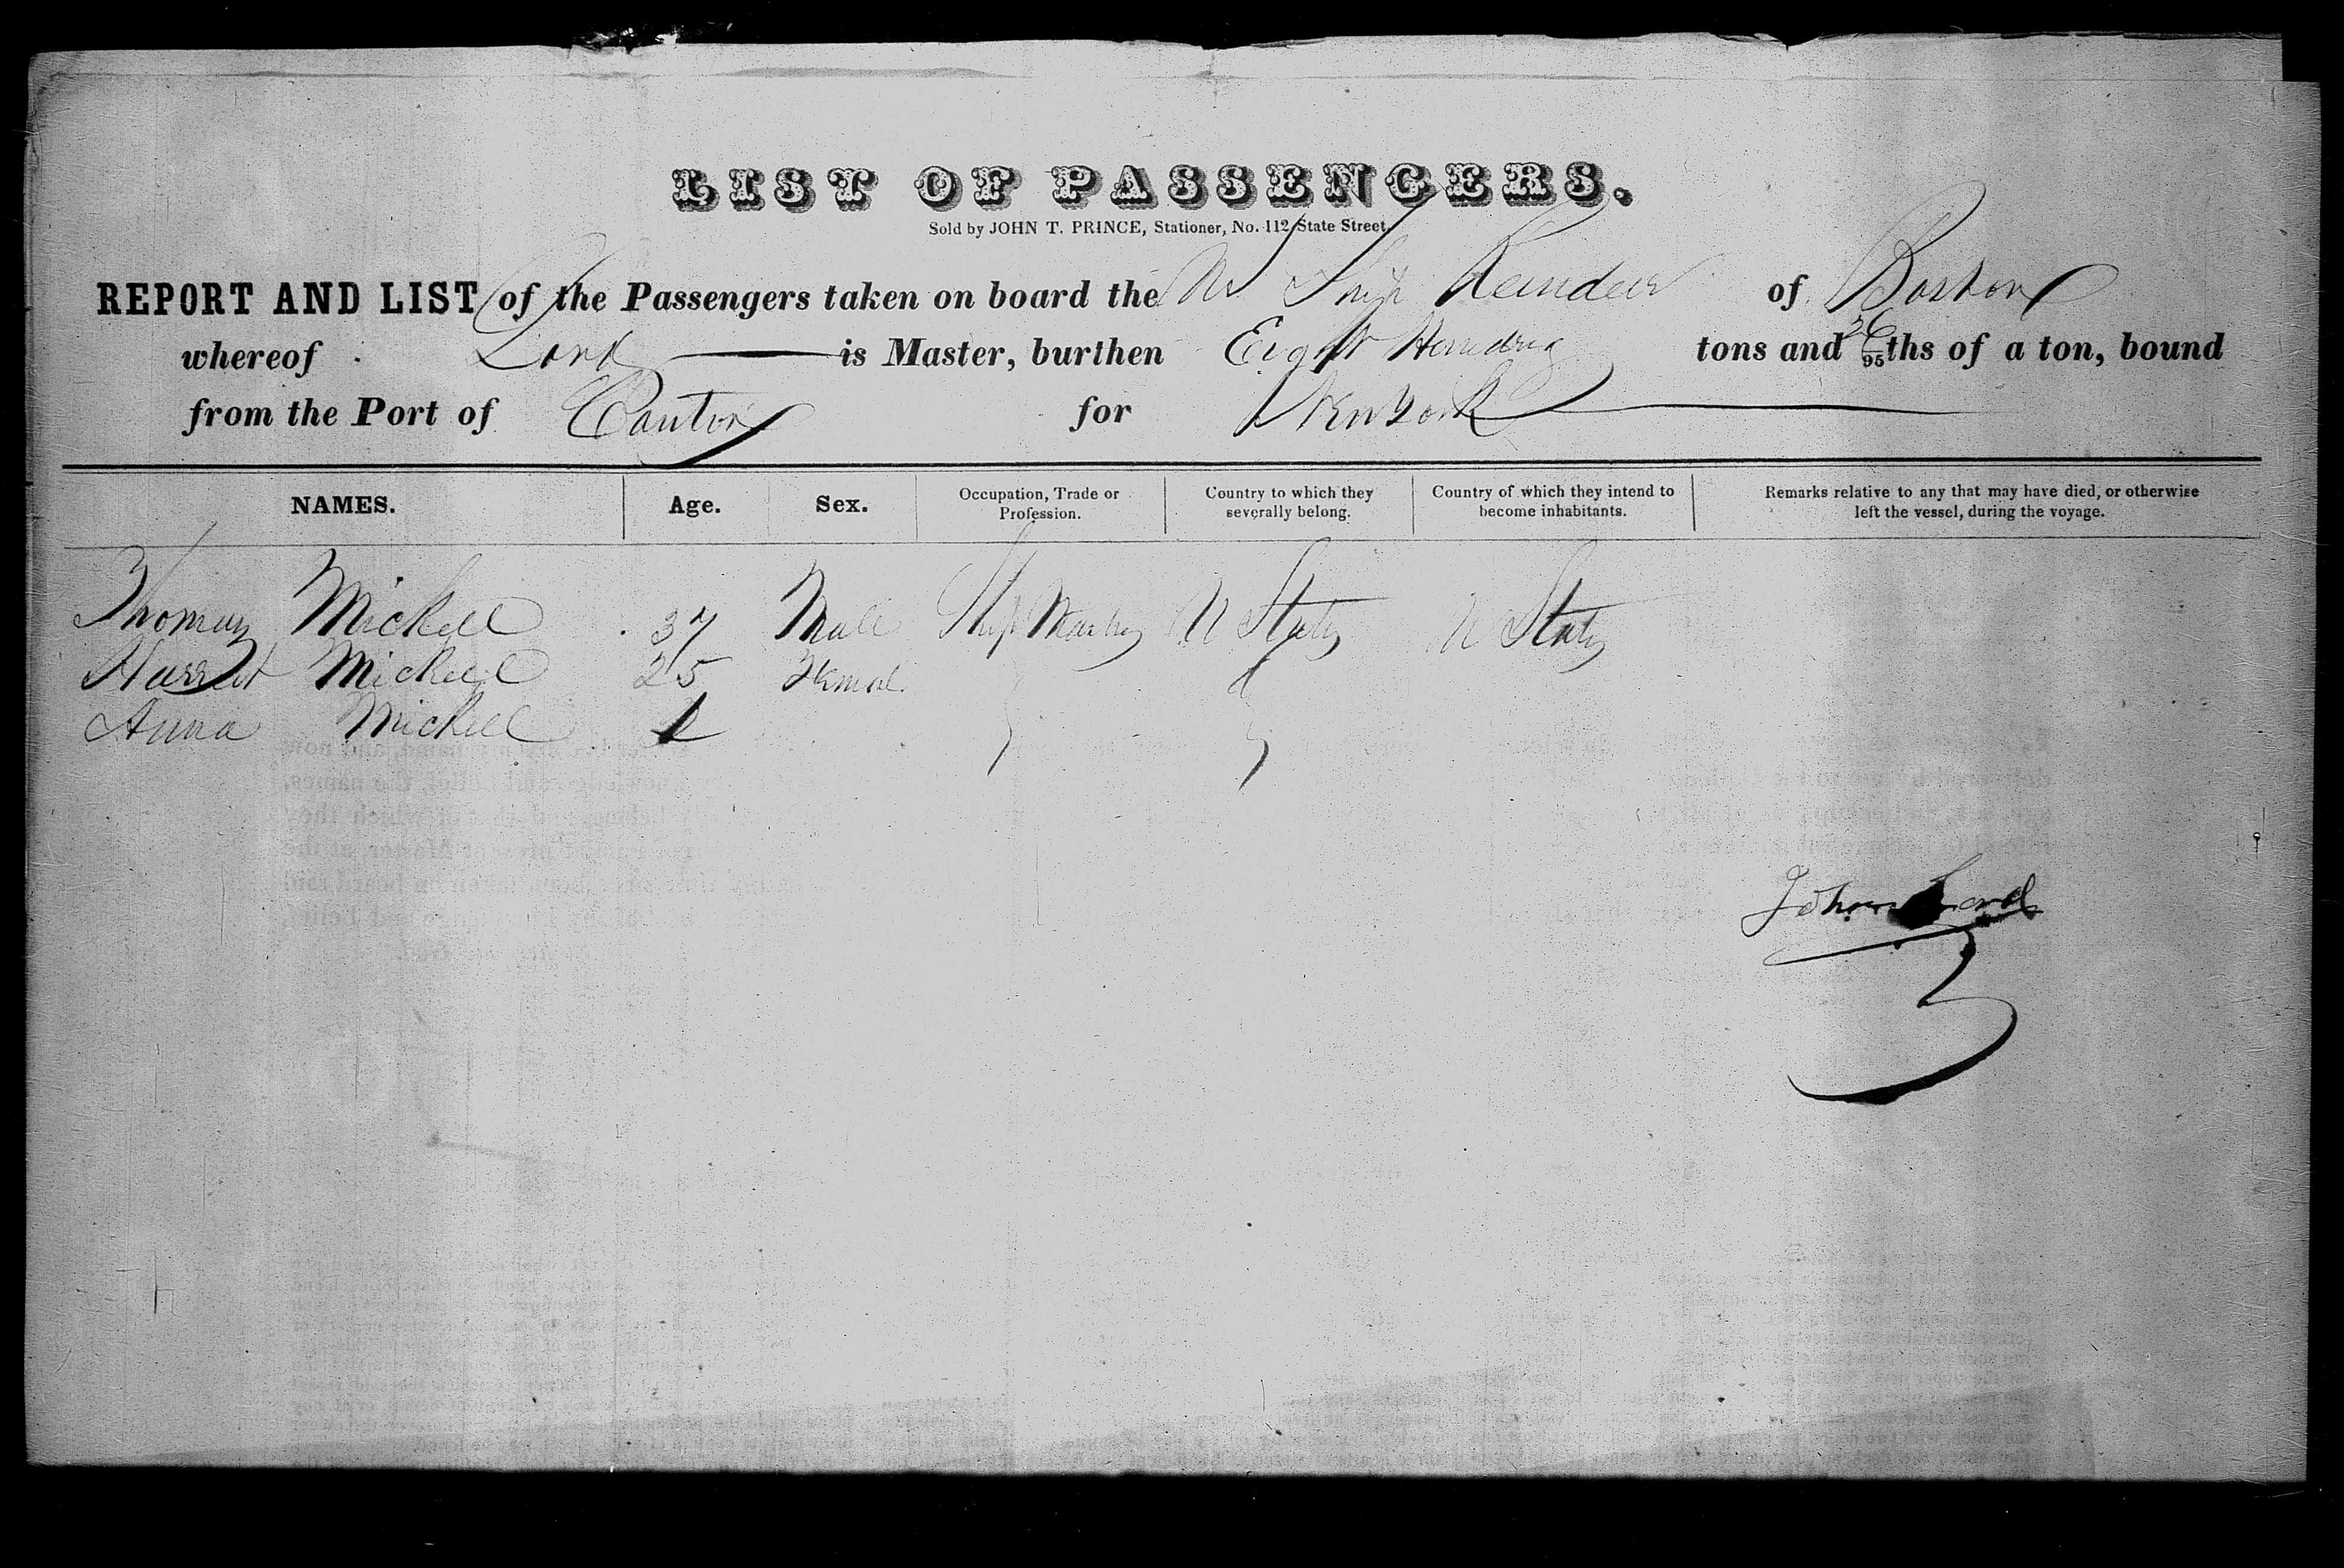 LIST OF PASSENGERS.
Sold by JOHN T. PRINCE, Stationer, No. 112 State Street.
REPORT AND LIST of the Passengers taken on board the Ship Reindeer of Boston
whereof Lord is Master, burthen Eight Hundred tons and 26/95ths of a ton, bound
from the Port of Canton for New York
NAMES. Age. Sex. Occupation, Trade or Profession. Country to which they severally belong. Country of which they intend to become inhabitants. Remarks relative to any that may have died, or otherwise left the vessel, during the voyage.
Thomas Mickell 37 Male Ship U States U States
Harriet Mickell 25
Anna Mickell 1
John Lord